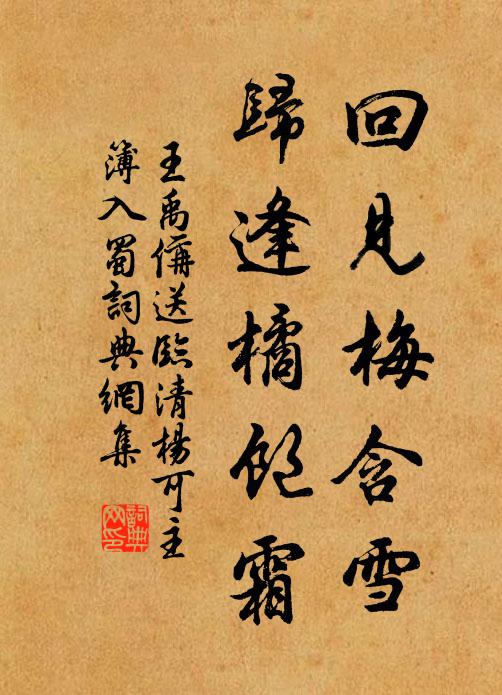 回見梅含雪
歸逢橘飽霜
王禹偁送臨清楊可主
簿入蜀詞典網集
詞典
网印